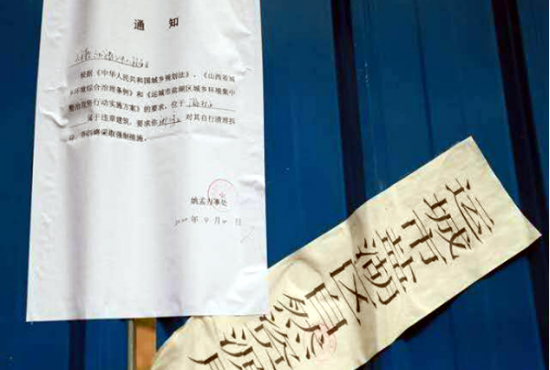 通知
根据《中华人民共和国城乡规划法》、《山西省城
乡环境综合治理条例》和《运城市盐湖区城乡环境集中
整治攻坚行动实施方案》的要求，位于
属于违章建筑，要求你 对其自行清理拆
采取强制措施。
姚孟办事处
年9月 日
运城市盐湖区自然资源局